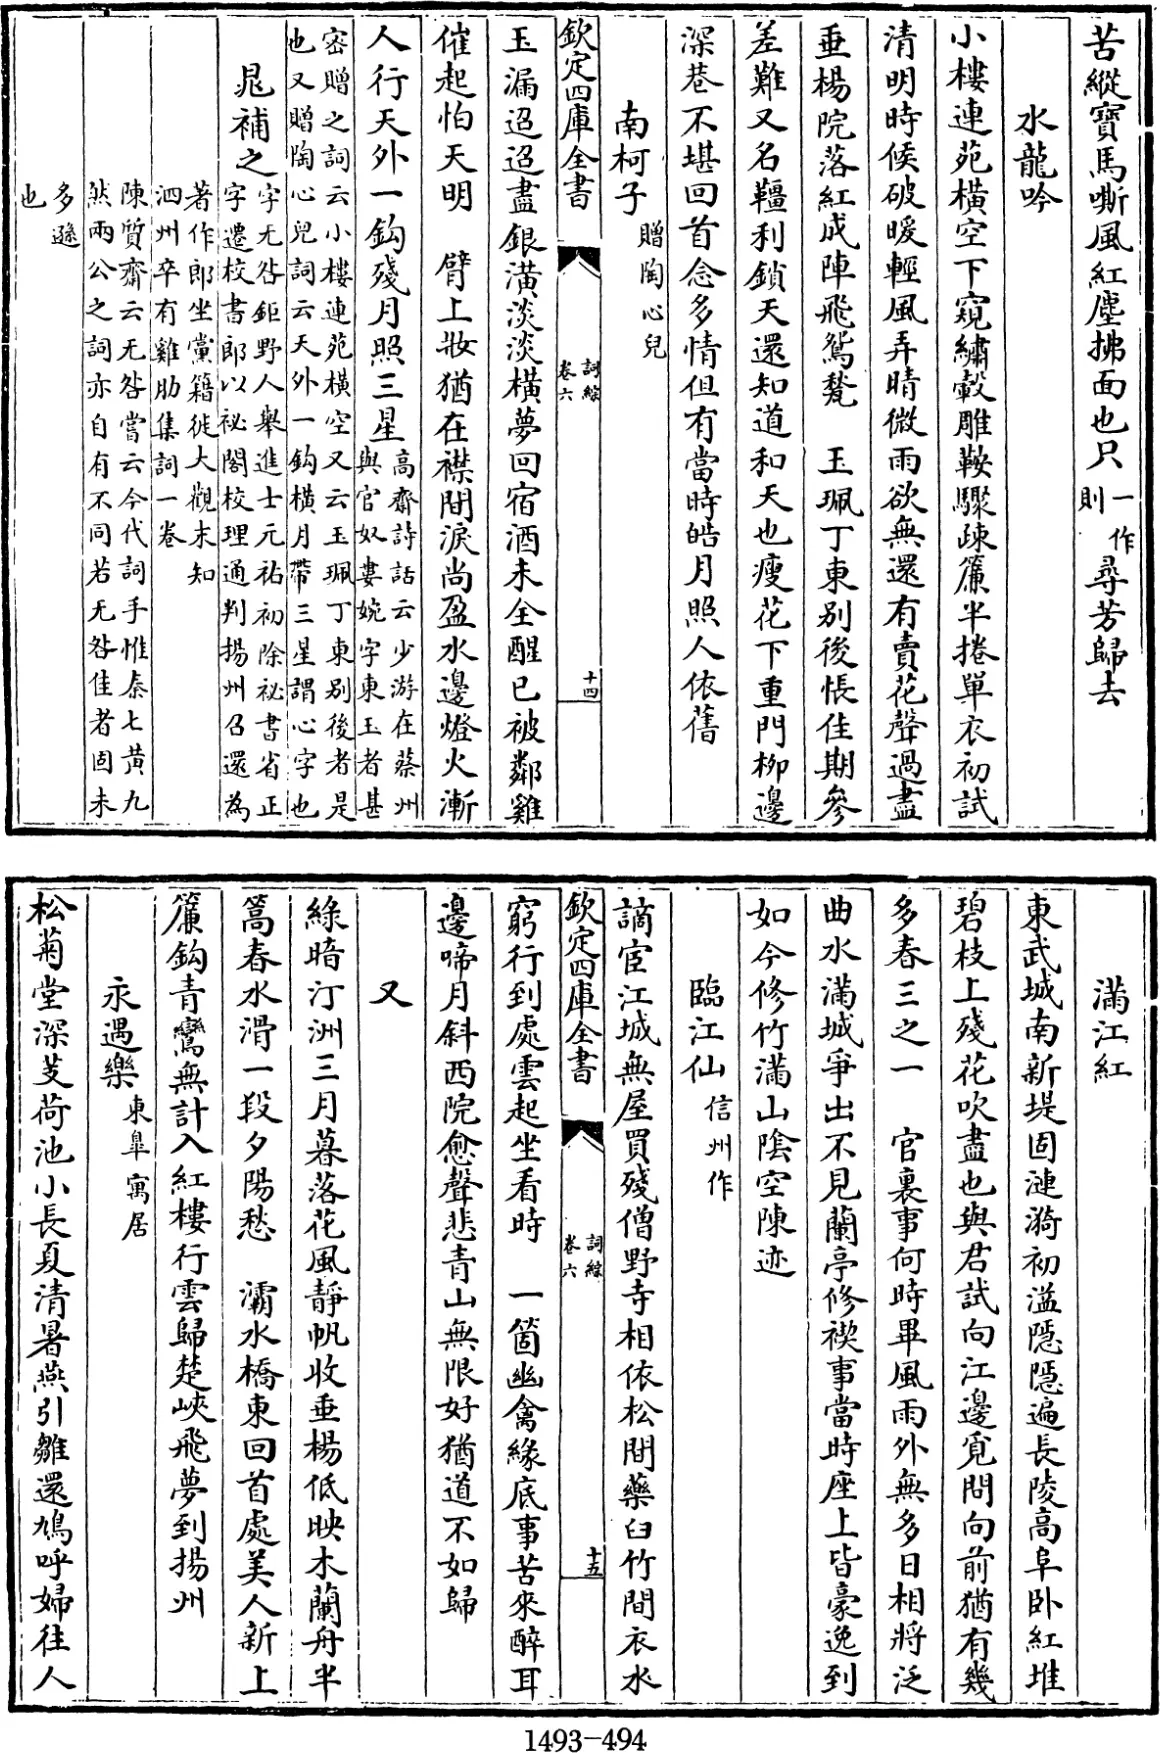 苦縱寶馬嘶風紅塵拂面也只一作則尋芳歸去
水龍吟
小樓連苑橫空下窺繡轂雕鞍驟疎簾半捲單衣初試
清明時候破暖輕風弄晴微雨欲無還有賣花聲過盡
垂楊院落紅成陣飛鴛甃　玉珮丁東別後悵佳期參
差難又名韁利鎖天還知道和天也瘦花下重門栁邊
深巷不堪回首念多情但有當時皓月照人依舊
南柯子贈陶心兒
欽定四庫全書
詞綜
卷六
十四
玉漏迢迢盡銀潢淡淡橫夢回宿酒未全醒已被鄰雞
催起怕天明　臂上妝猶在襟間淚尚盈水邊燈火漸
人行天外一鈎殘月照三星高齋詩話云少游在蔡州
與官奴婁婉字東玉者甚
密贈之詞云小樓連苑橫空又云玉珮丁東別後者是
也又贈陶心兒詞云天外一鈎橫月帶三星謂心字也
晁補之字无咎鉅野人舉進士元祐初除祕書省正
字遷校書郎以祕閣校理通判揚州召還為
著作郎坐黨籍徙大觀末知
泗州卒有雞肋集詞一卷
陳質齋云无咎嘗云今代詞手惟秦七黄九
然兩公之詞亦自有不同若无咎佳者固未
多遜
也
滿江紅
東武城南新堤固漣漪初溢隱隱遍長陵高阜卧紅堆
碧枝上殘花吹盡也與君試向江邊覓問向前猶有幾
多春三之一　官裏事何時畢風雨外無多日相將泛
曲水滿城爭出不見蘭亭修禊事當時座上皆豪逸到
如今修竹滿山陰空陳迹
臨江仙信州作
謫宦江城無屋買殘僧野寺相依松間藥臼竹間衣水
欽定四庫全書
詞綜
卷六
十五
窮行到處雲起坐看時　一箇幽禽緣底事苦來醉耳
邊啼月斜西院愈聲悲青山無限好猶道不如歸
又
綠暗汀洲三月暮落花風靜帆收垂楊低映木蘭舟半
篙春水滑一段夕陽愁　灞水橋東回首處美人新上
簾鈎青鸞無計入紅樓行雲歸楚峽飛夢到揚州
永遇樂東臯寓居
松菊堂深芰荷池小長夏清暑燕引雛還鳩呼婦往人
1493-494